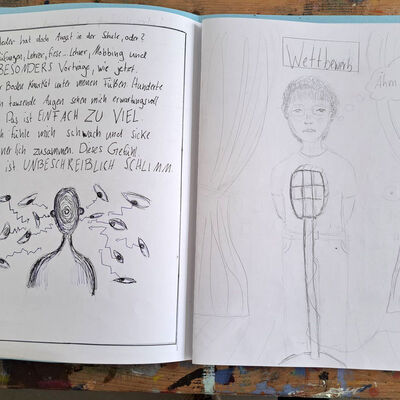 Jeder hat doch Angst in der Schule, oder?
Prüfungen, Lehrer, fiese... Lehrer, Mobbing und
BESONDERS Vorträge, wie jetzt.
Der Boden knarkst unter meinen Füßen Hunderte
tausende Augen sehen mich erwartungsvoll
Das ist EINFACH ZU VIEL.
Ich fühle mich schwach und sicke
innerlich zusammen. Dieses Gefühl
ist UNBESCHREIBLICH SCHLIMM.
Wettbewerb
Ähm